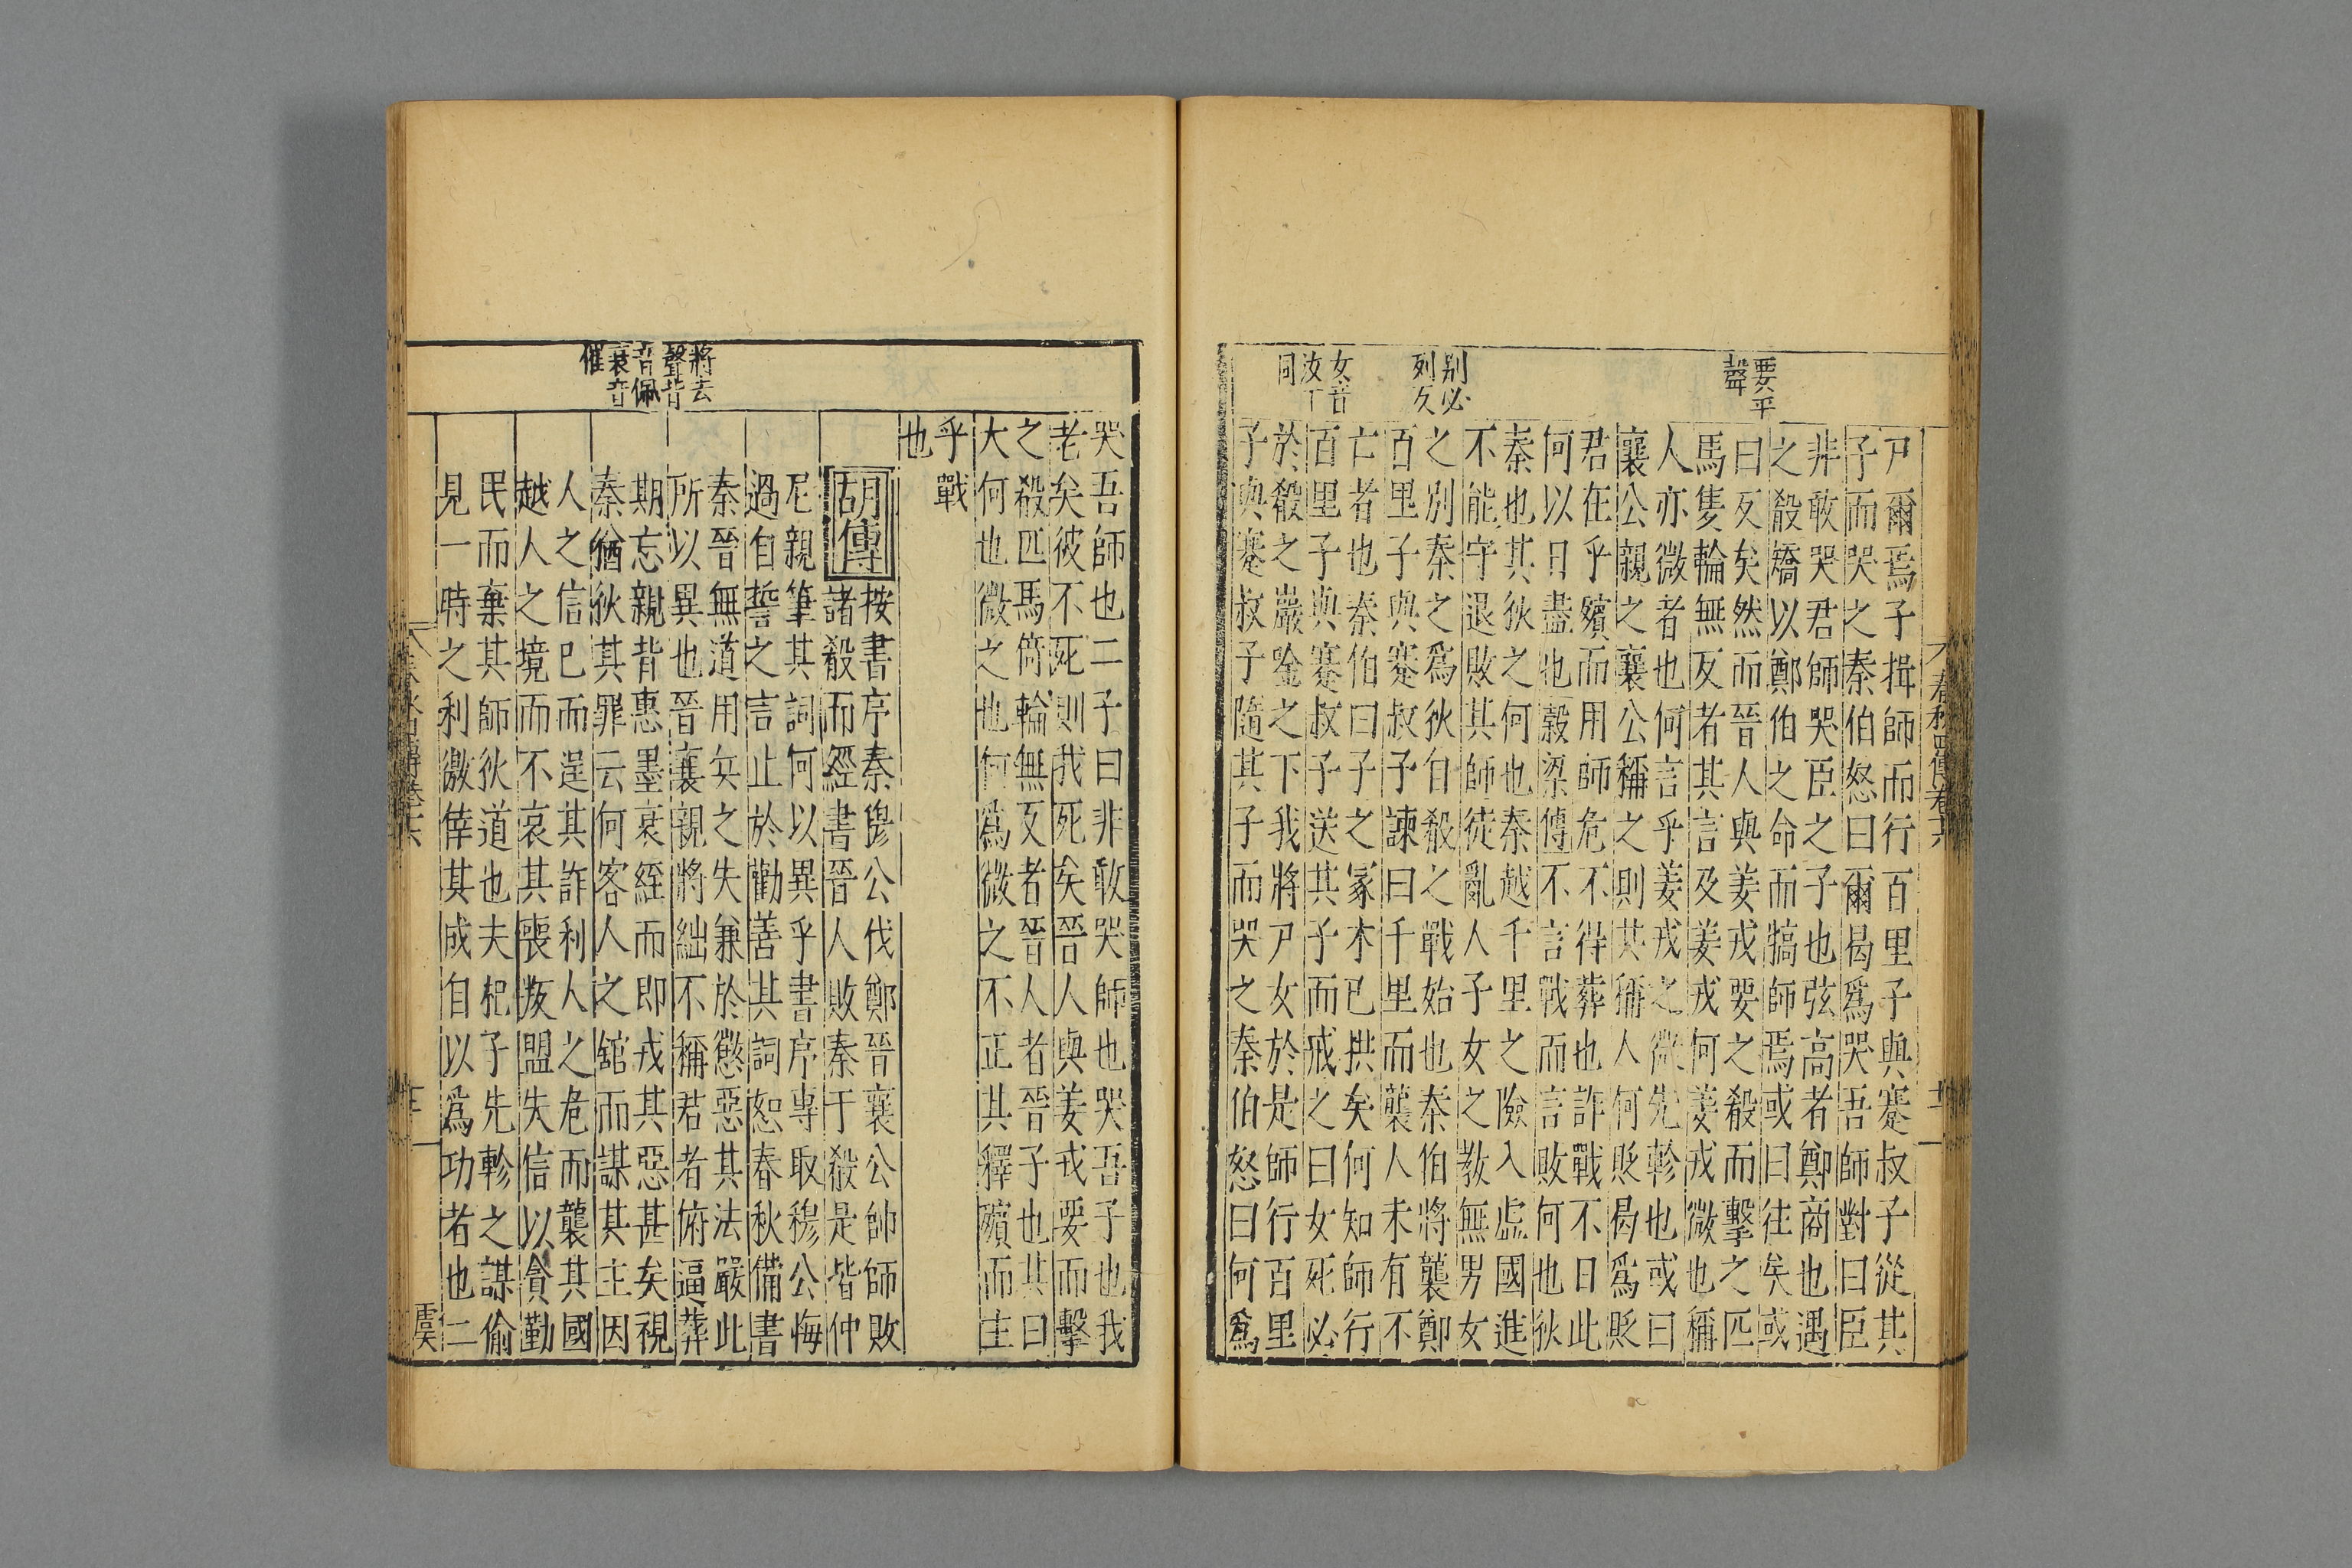 春秋四傳卷十六
要平
聲
別必
列反
女音
汝下
同
尸爾焉子揖師而行百里子與蹇叔子從其
子而哭之秦伯怒曰爾曷爲哭吾師對曰臣
非敢哭君師哭臣之子也弦高者鄭商也遇
之殽矯以鄭伯之命而犒師焉或曰往矣或
曰反矣然而晉人與姜戎要之殽而擊之匹
馬隻輪無反者其言及姜戎何姜戎微也稱
人亦微者也何言乎姜戎之微先軫也或曰
襄公親之襄公稱之則其稱人何貶曷爲貶
君在乎殯而用師危不得葬也詐戰不日此
何以日盡也穀梁傳不言戰而言敗何也狄
秦也其狄之何也秦越千里之險入虛國進
不能守退敗其師徒亂人子女之教無男女
之別秦之爲狄自殽之戰始也秦伯將襲鄭
百里子與蹇叔子諫曰千里而襲人未有不
亡者也秦伯曰子之冢木已拱矣何知師行
百里子與蹇叔子送其子而戒之曰女死必
於殽之巖唫之下我將尸女於是師行百里
子與蹇叔子隨其子而哭之秦伯怒曰何爲
將去
聲背
音佩
衰音
催
哭吾師也二子曰非敢哭師也哭吾子也我
老矣彼不死則我死矣晉人與姜戎要而擊
之殽匹馬倚輪無反者晉人者晉子也其曰
大何也微之也何爲微之不正其釋殯而主
乎戰
也
胡傳
按書序秦穆公伐鄭晉襄公帥師敗
諸殽而經書晉人敗秦于殽是皆仲
尼親筆其詞何以異乎書序專取穆公悔
過自誓之言止於勸善其詞恕春秋備書
秦晉無道用兵之失兼於懲惡其法嚴此
所以異也晉襄親將絀不稱君者俯逼葬
期忘親背惠墨衰絰而即戎其惡甚矣視
秦猶狄其罪云何客人之館而謀其主因
人之信已而逞其詐利人之危而襲其國
越人之境而不哀其喪叛盟失信以貪勤
民而棄其師狄道也夫杞子先軫之謀偷
見一時之利徼倖其成自以爲功者也二
虞